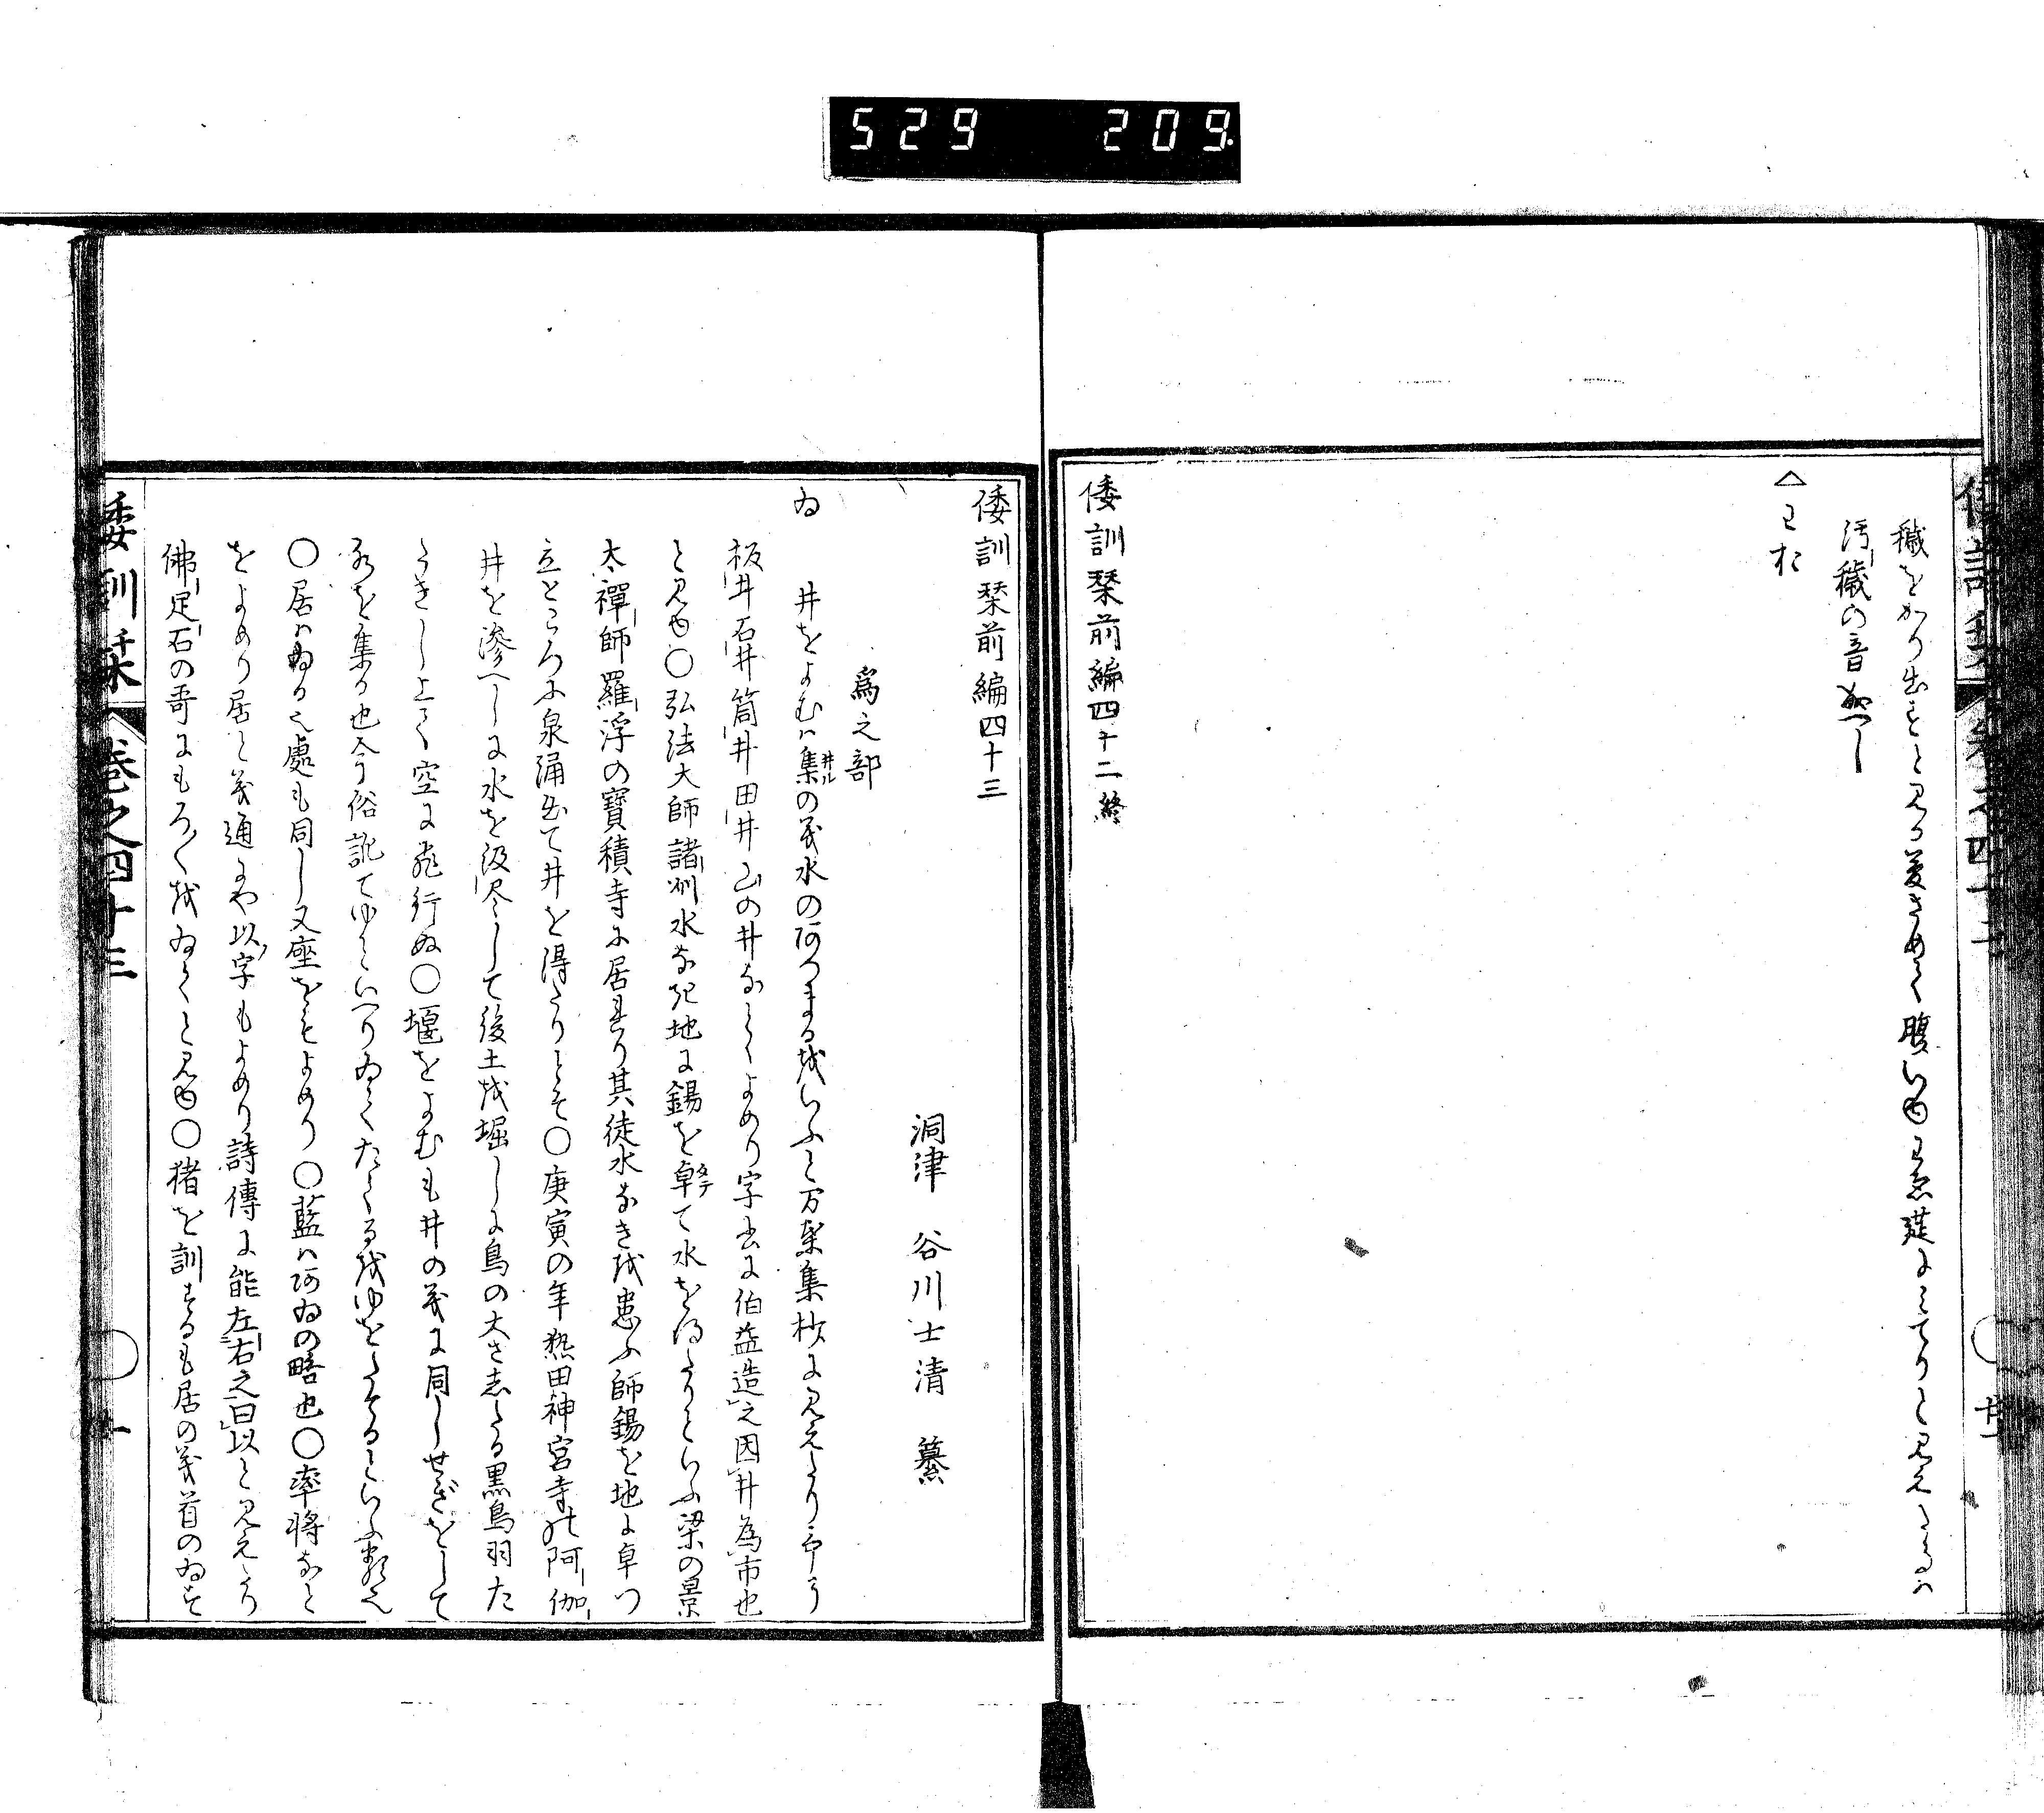 529 209
穢をかり出すと見る爰さめて腹いゆ
汚穢の音なへし
△ヱお
倭訓栞前編四十二終
倭訓栞前編四十三
洞津 谷川士清 纂
爲之部
ゐ
井をよむハ集の義水のあつまるをいふと万葉集抄に見えたり
板井石井筒井田井山の井なとよめり字書に伯益造之因井為市也
と見ゆ〇弘法大師諸州水なき地に錫を卓て水を得たりといふ梁の景
太禪師羅浮の寶積寺に居れり其徒水なき越患ふ師錫を地に卓つ
立ところに泉涌出て井を得たりとそ〇庚寅の年熱田神宮寺の阿伽
井を渗へしに水を汲尽して後土を堀しに鳥の大さしたる黒鳥羽た
たきし上て空に飛行ぬ〇堰をよむも井の義に同しせぎをして
水を集る也今俗訛てゆといへり
〇居ハゐる之處も同し又座をもよめり〇藍ハあゐの畧也〇率将なと
をよめり居と義通にや以字もよめり詩傳に能左右之曰以と見えたり
佛足石の哥にもろ〳〵をゐてと見ゆ〇猪を訓するも居の義首のゐす
倭訓栞 卷之四十三 一